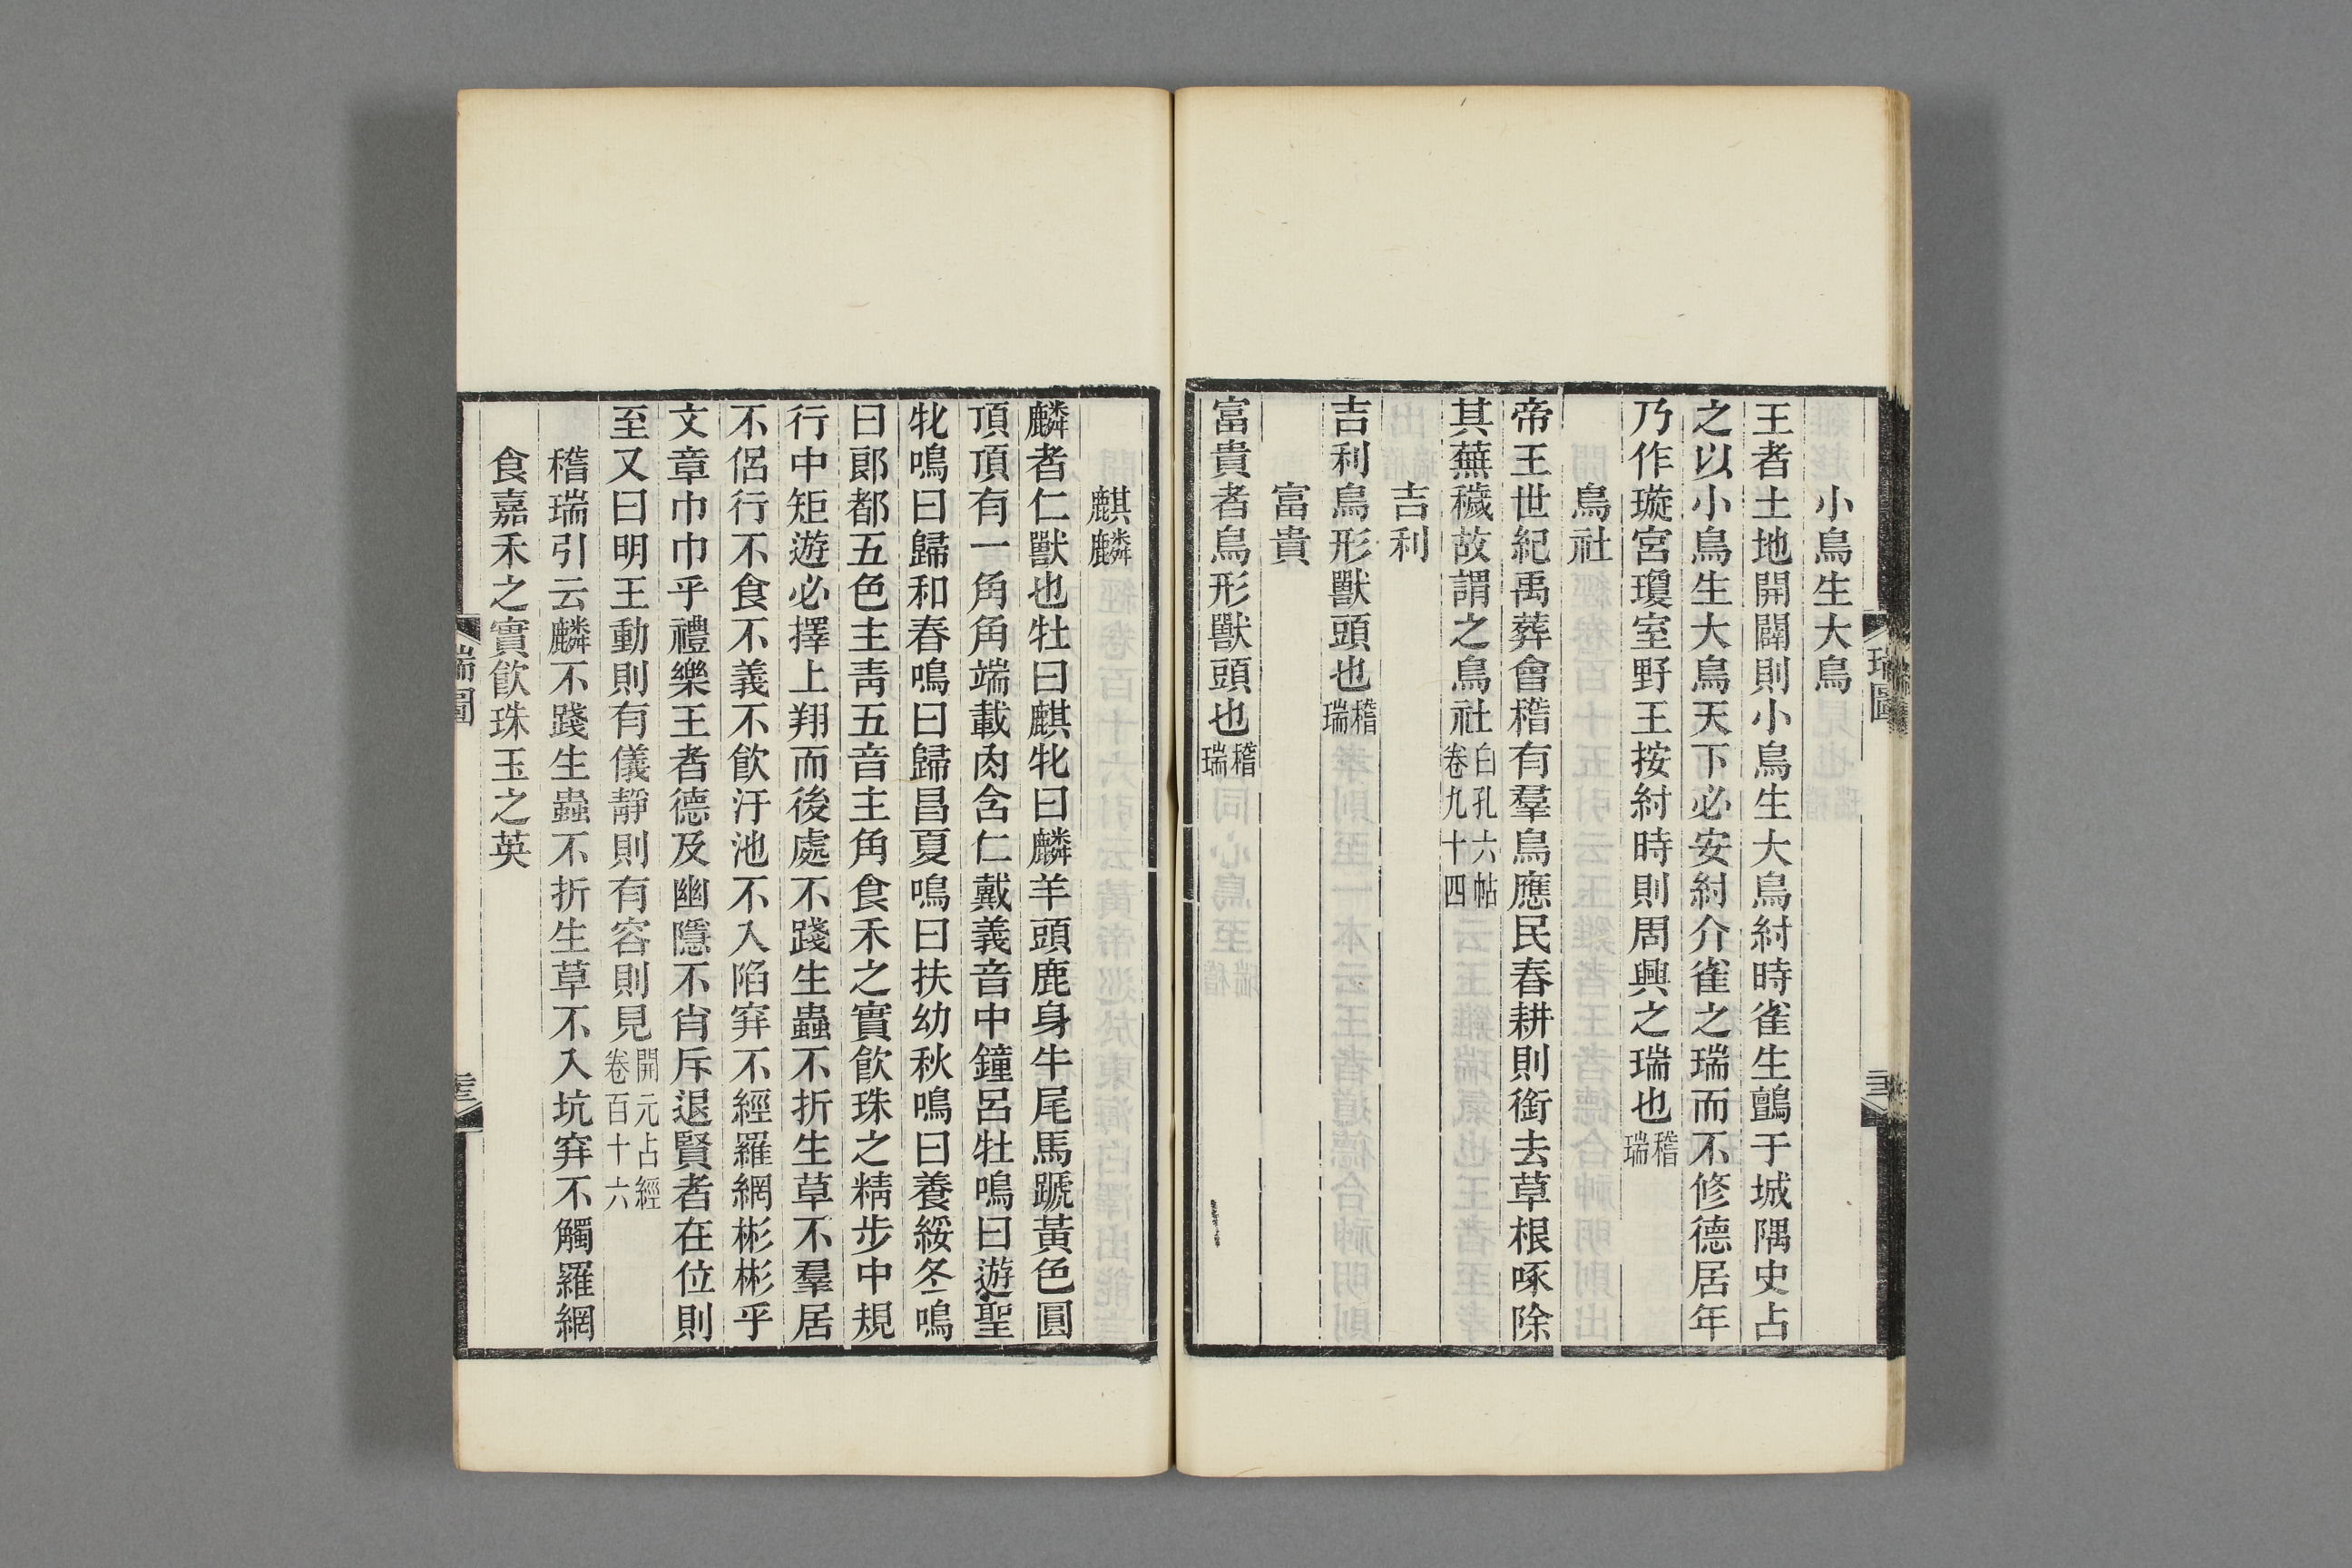 小鳥生大鳥
王者土地開闢則小鳥生大鳥紂時雀生鸇于城隅史占
之以小鳥生大鳥天下必安紂介雀之瑞而不修德居年
乃作璇宮瓊室野王按紂時則周興之瑞也稽瑞
鳥社
帝王世紀禹葬會稽有羣鳥應民春耕則銜去草根啄除
其蕪穢故謂之鳥社白孔六帖卷九十四
吉利
吉利鳥形獸頭也稽瑞
富貴
富貴者鳥形獸頭也稽瑞
麒麟
麟者仁獸也牡曰麒牝曰麟羊頭鹿身牛尾馬蹏黃色圓
頂頂有一角角端載肉含仁戴義音中鐘呂牡鳴曰遊聖
牝鳴曰歸和春鳴曰歸昌夏鳴曰扶幼秋鳴曰養綏冬鳴
曰郎都五色主青五音主角食禾之實飲珠之精步中規
行中矩遊必擇上翔而後處不踐生蟲不折生草不羣居
不侶行不食不義不飲汙池不入陷穽不經羅網彬彬乎
文章巾巾乎禮樂王者德及幽隱不肖斥退賢者在位則
至又曰明王動則有儀靜則有容則見開元占經卷百十六
稽瑞引云麟不踐生蟲不折生草不入坑穽不觸羅網
食嘉禾之實飲珠玉之英
瑞圖